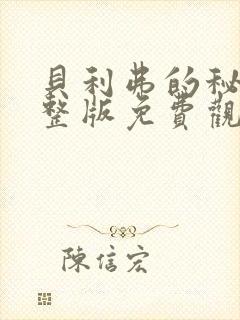 貝利弗的秘
整版免費觀
陳信宏